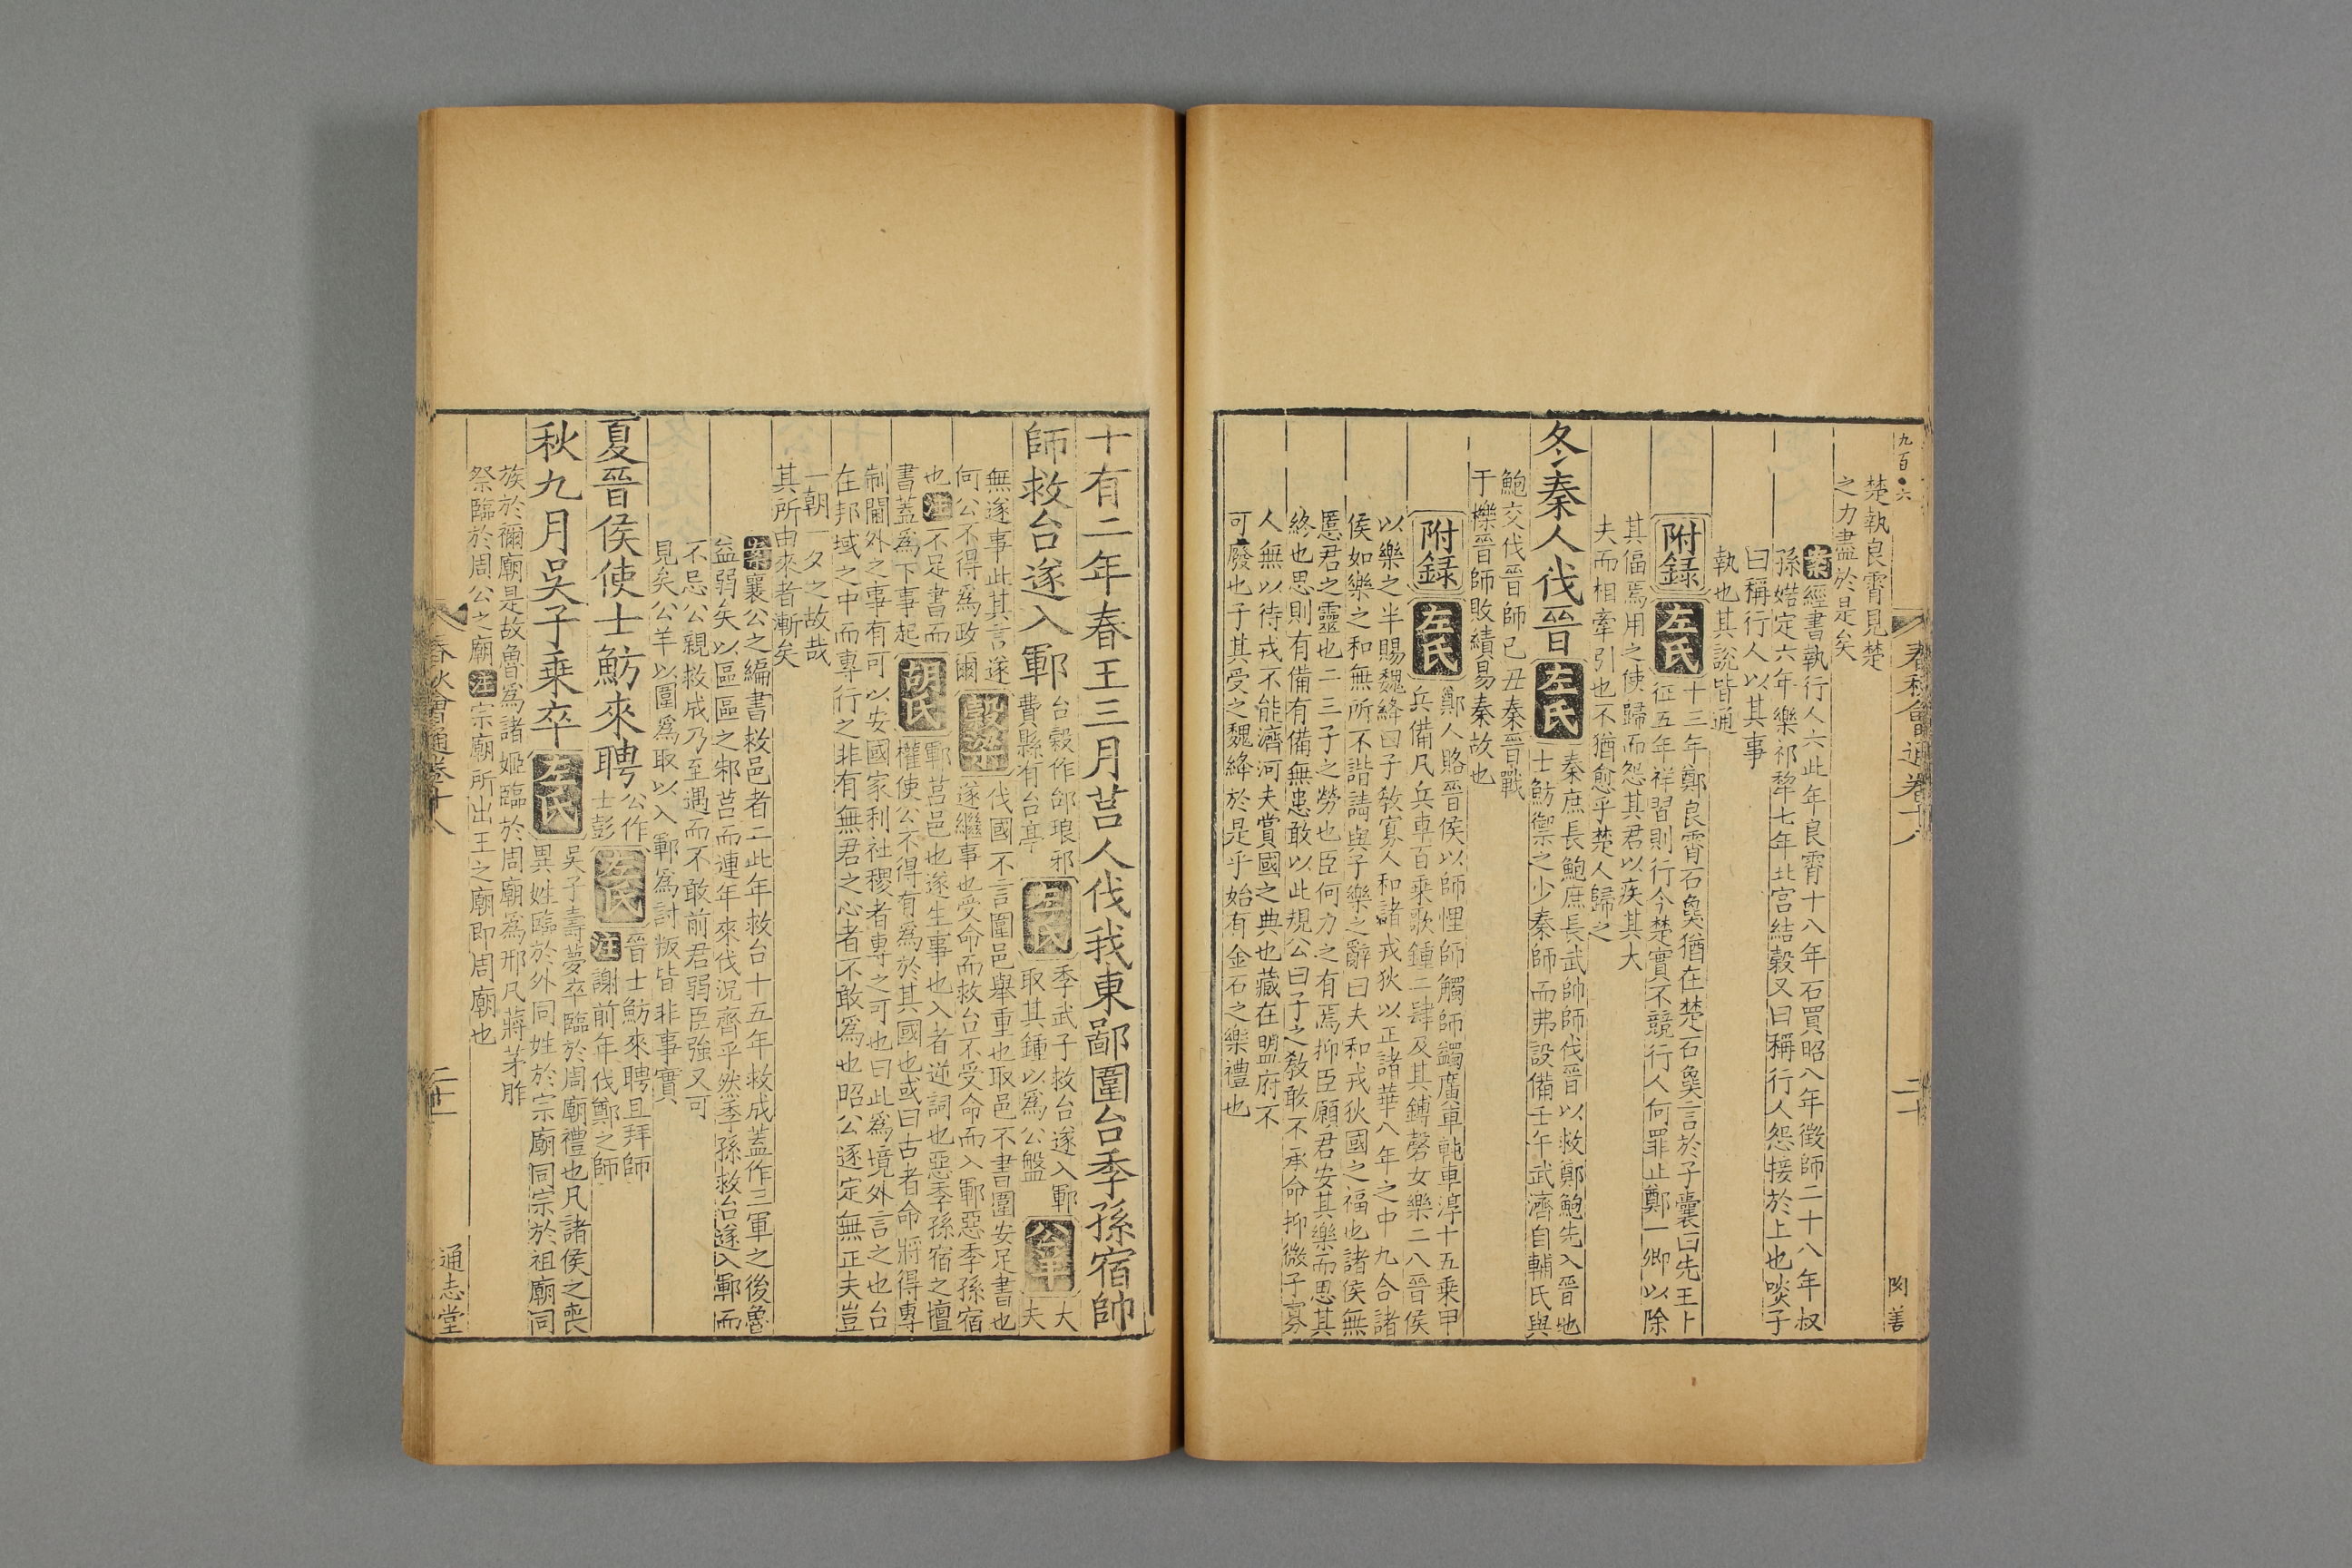 九百●六
春秋會通卷十八
二十
楚執良霄見楚
之力盡於是矣
案經書執行人六此年良霄十八年石買昭八年徵師二十八年叔
孫婼定六年樂祁犂七年北宮結穀又曰稱行人怨接於上也啖子
曰稱行人以其事
執也其說皆通
附録 左氏 十三年鄭良霄石㚟猶在楚石㚟言於子囊曰先王卜
征五年祥習則行今楚實不競行人何罪止鄭一卿以除
其偪焉用之使歸而怨其君以疾其大
夫而相牽引也不猶愈乎楚人歸之
冬秦人伐晉 左氏 秦庶長鮑庶長武帥師伐晉以救鄭鮑先入晉地
士魴禦之少秦師而弗設備壬午武濟自輔氏與
鮑交伐晉師已丑秦晉戰
于櫟晉師敗績易秦故也
附録 左氏 鄭人賂晉侯以師悝師觸師蠲廣車軘車淳十五乘甲
兵備凡兵車百乘歌鍾二肆及其鎛磬女樂二八晉侯
以樂之半賜魏絳曰子敎寡人和諸戎狄以正諸華八年之中九合諸
侯如樂之和無所不諧請與子樂之辭曰夫和戎狄國之福也諸侯無
慝君之靈也二三子之勞也臣何力之有焉抑臣願君安其樂而思其
終也思則有備有備無患敢以此規公曰子之敎敢不承命抑微子寡
人無以待戎不能濟河夫賞國之典也藏在盟府不
可廢也子其受之魏絳於是乎始有金石之樂禮也
十有二年春王三月莒人伐我東鄙圍台季孫宿帥
師救台遂入鄆 台穀作邰琅邪
費縣有台亭 左氏 季武子救台遂入鄆
取其鍾以爲公盤 公羊 大
夫
無遂事此其言遂
何公不得爲政爾 穀梁 伐國不言圍邑舉重也取邑不書圍安足書也
遂繼事也受命而救台不受命而入鄆惡季孫宿
也 注 不足書而
書蓋爲下事起 胡氏 鄆莒邑也遂生事也入者逆詞也惡季孫宿之擅
權使公不得有爲於其國也或曰古者命將得專
制閫外之事有可以安國家利社稷者專之可也曰此爲境外言之也台
在邦域之中而專行之非有無君之心者不敢爲也昭公逐定無正夫豈
一朝一夕之故哉
其所由來者漸矣
案襄公之編書救邑者二此年救台十五年救成蓋作三軍之後魯
益弱矣以區區之邾莒而連年來伐況齊乎然季孫救台遂入鄆而
不忌公親救成乃至遇而不敢前君弱臣強又可
見矣公羊以圍爲取以入鄆爲討叛皆非事實
夏晉侯使士魴來聘 公作
士彭 左氏 晉士魴來聘且拜師
注 謝前年伐鄭之師
秋九月吳子乘卒 左氏 吳子壽夢卒臨於周廟禮也凡諸侯之喪
異姓臨於外同姓於宗廟同宗於祖廟同
族於禰廟是故魯爲諸姬臨於周廟爲邢凡蔣茅胙
祭臨於周公之廟 注 宗廟所出王之廟即周廟也
春秋會通卷十八
二十一
通志堂